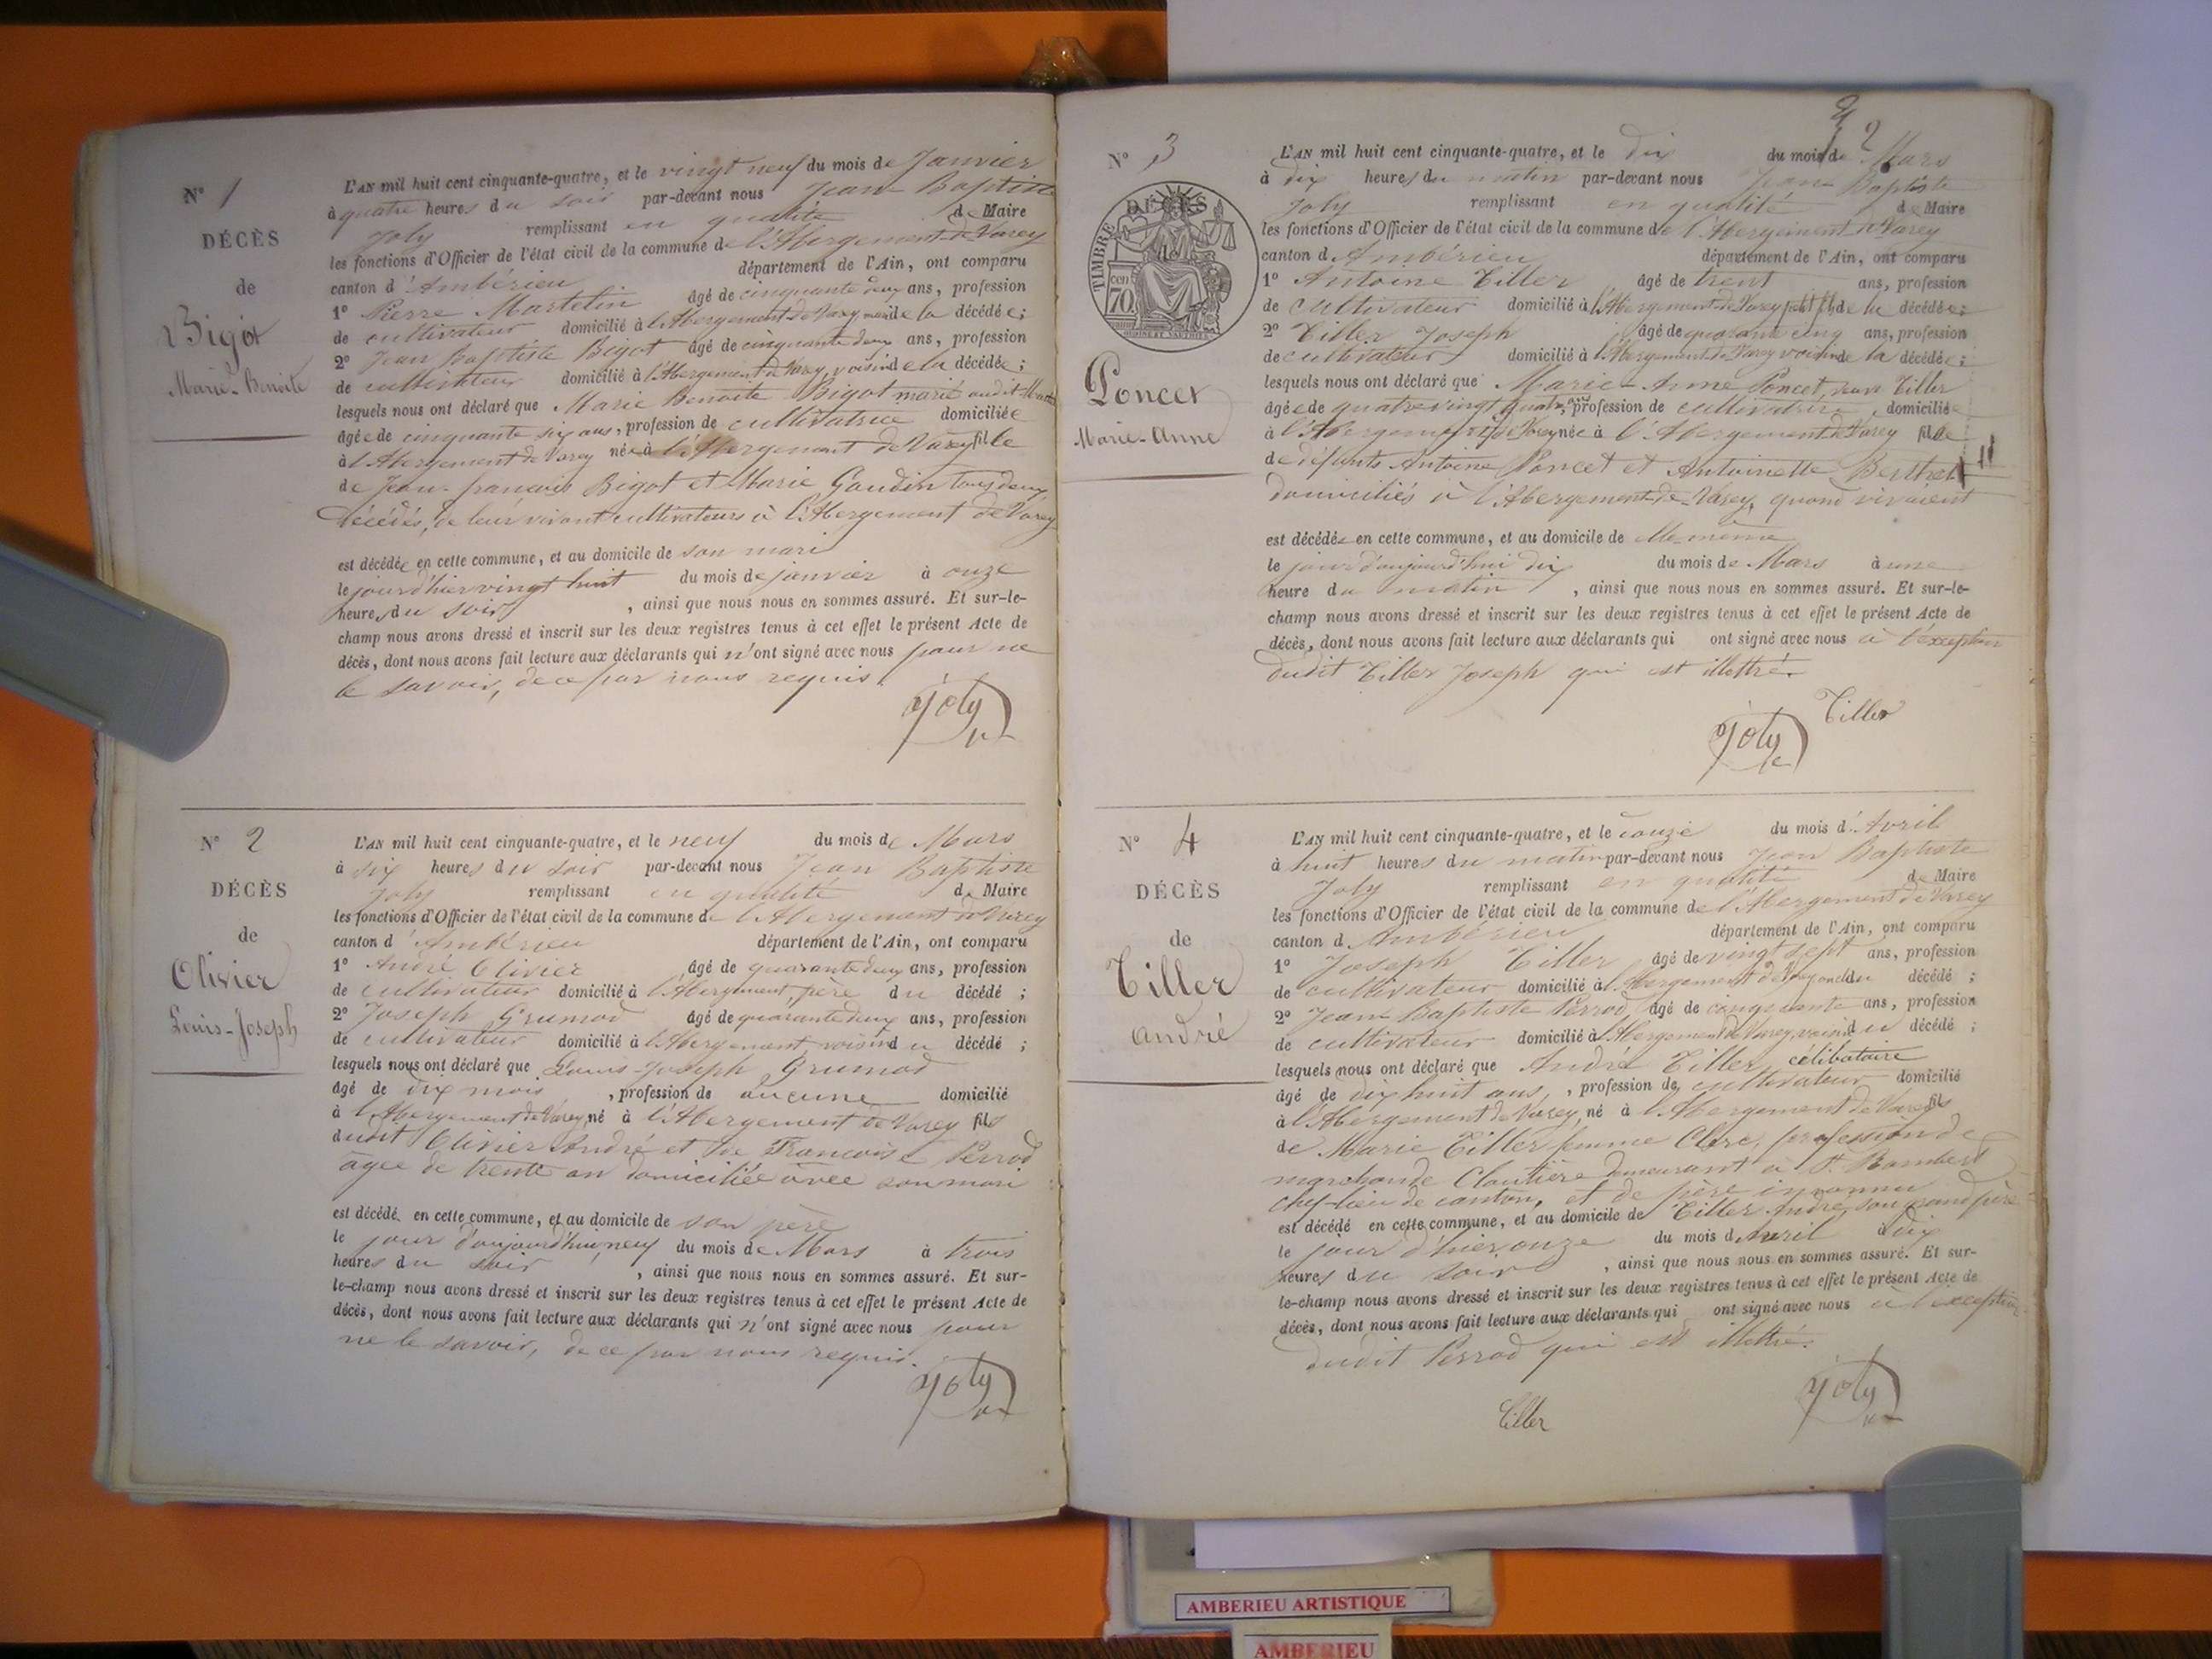 N° 1
DÉCÈS
de
Bigot
Marie-Benoite
L'AN mil huit cent cinquante-quatre, et le vingt neuf du mois de Janvier
à quatre heures du soir par-devant nous Jean Baptiste
Joly remplissant en qualité de Maire
les fonctions d'Officier de l'état civil de la commune de l'Abergement de Varey
canton d'Ambérieu département de l'Ain, ont comparu
1° Pierre Martelin âgé de cinquante deux ans, profession
de cultivateur domicilié à l'Abergement de Varey mari de la décédée;
2° Jean Baptiste Bigot âgé de cinquante deux ans, profession
de cultivateur domicilié à l'Abergement de Varey, voisin de la décédée;
lesquels nous ont déclaré que Marie Benoite Bigot marié audit
âgée de cinquante six ans, profession de cultivatrice domiciliée
à l'Abergement de Varey née à l'Abergement de Varey fille
de Jean-francois Bigot et Marie Goudin tous deux
décédés, de leur vivant cultivateurs à l'Abergement de Varey
est décédée en cette commune, et au domicile de son mari
le jour d'hier vingt huit du mois de janvier à onze
heures du soir, ainsi que nous nous en sommes assuré. Et sur-le-
champ nous avons dressé et inscrit sur les deux registres tenus à cet effet le présent Acte de
décès, dont nous avons fait lecture aux déclarants qui n'ont signé avec nous pour ne
le savoir, de ce par nous requis.
Joly
N° 2
DÉCÈS
de
Olivier
Louis-Joseph
L'AN mil huit cent cinquante-quatre, et le neuf du mois de Mars
à six heures du soir par-devant nous Jean Baptiste
Joly remplissant en qualité de Maire
les fonctions d'Officier de l'état civil de la commune de l'Abergement de Varey
canton d'Ambérieu département de l'Ain, ont comparu
1° André Olivier âgé de quarante deux ans, profession
de cultivateur domicilié à l'Abergement, père du décédé;
2° Joseph Grumod âgé de quarante deux ans, profession
de cultivateur domicilié à l'Abergement, voisin du décédé;
lesquels nous ont déclaré que Louis-Joseph Grumod
âgé de dix mois, profession de aucune domicilié
à l'Abergement de Varey, né à l'Abergement de Varey fils
dudit Olivier André et de Francoise Perrod
agée de trente an domiciliée avec son mari
est décédé en cette commune, et au domicile de son père
le jour d'aujourd'hui, neuf du mois de Mars à trois
heures du soir, ainsi que nous nous en sommes assuré. Et sur-
le-champ nous avons dressé et inscrit sur les deux registres tenus à cet effet le présent Acte de
décès, dont nous avons fait lecture aux déclarants qui n'ont signé avec nous pour
ne le savoir, de ce par nous requis.
Joly
2
N° 3
TIMBRE DÉCÈS
de
70 cen
Poncet
Marie-Anne
L'AN mil huit cent cinquante-quatre, et le dix du mois de Mars
à dix heures du matin par-devant nous Jean Baptiste
Joly remplissant en qualité de Maire
les fonctions d'Officier de l'état civil de la commune de l'Abergement de Varey
canton d Ambérieu département de l'Ain, ont comparu
1° Antoine Tiller âgé de trent ans, profession
de cultivateur domicilié à l'Abergement de Varey petit fils de la décédée;
2° Tiller Joseph âgé de quarante cinq ans, profession
de cultivateur domicilié à l'Abergement de Varey voisin de la décédée;
lesquels nous ont déclaré que Marie-Anne Poncet, veuve Tiller
âgée de quatre vingt quatre ans, profession de cultivatrice, domiciliée
à l'Abergement de Varey née à l'Abergement de Varey fille
de défunts Antoine Poncet et Antoinette Berthet
domiciliés à l'Abergement-de-Varey, quand vivaient
est décédée en cette commune, et au domicile de elle même
le jour d'aujourd'hui dix du mois de Mars à une
heure du matin, ainsi que nous nous en sommes assuré. Et sur-le-
champ nous avons dressé et inscrit sur les deux registres tenus à cet effet le présent Acte de
décès, dont nous avons fait lecture aux déclarants qui ont signé avec nous à l'exception
dudit Tiller Joseph qui est illettré.
Tiller
Joly
N° 4
DÉCÈS
de
Tiller
André
L'AN mil huit cent cinquante-quatre, et le douze du mois d'Avril
à huit heures du matin par-devant nous Jean Baptiste
Joly remplissant en qualité de Maire
les fonctions d'Officier de l'état civil de la commune de l'Abergement de Varey
canton d Ambérieu département de l'Ain, ont comparu
1° Joseph Tiller âgé de vingt sept ans, profession
de cultivateur domicilié à l'Abergement de Varey oncle du décédé;
2° Jean Baptiste Perrod, âgé de cinquante ans, profession
de cultivateur domicilié à l'Abergement de Varey, voisin du décédé;
lesquels nous ont déclaré que André Tiller célibataire
âgé de dix huit ans, profession de cultivateur domicilié
à l'Abergement de Varey, né à l'Abergement de Varey fils
de Marie Tiller femme Clerc, profession de
marchande Cloutière demeurant à St. Rambert
chef-lieu de canton, et de père inconnu
est décédé en cette commune, et au domicile de Tiller André, son grand père
le jour d'hier onze du mois d'Avril à dix
heures du soir, ainsi que nous nous en sommes assuré. Et sur-
le-champ nous avons dressé et inscrit sur les deux registres tenus à cet effet le présent Acte de
décès, dont nous avons fait lecture aux déclarants qui ont signé avec nous à l'exception
dudit Perrod qui est illettré.
Tiller
Joly
AMBERIEU ARTISTIQUE
AMBERIEU